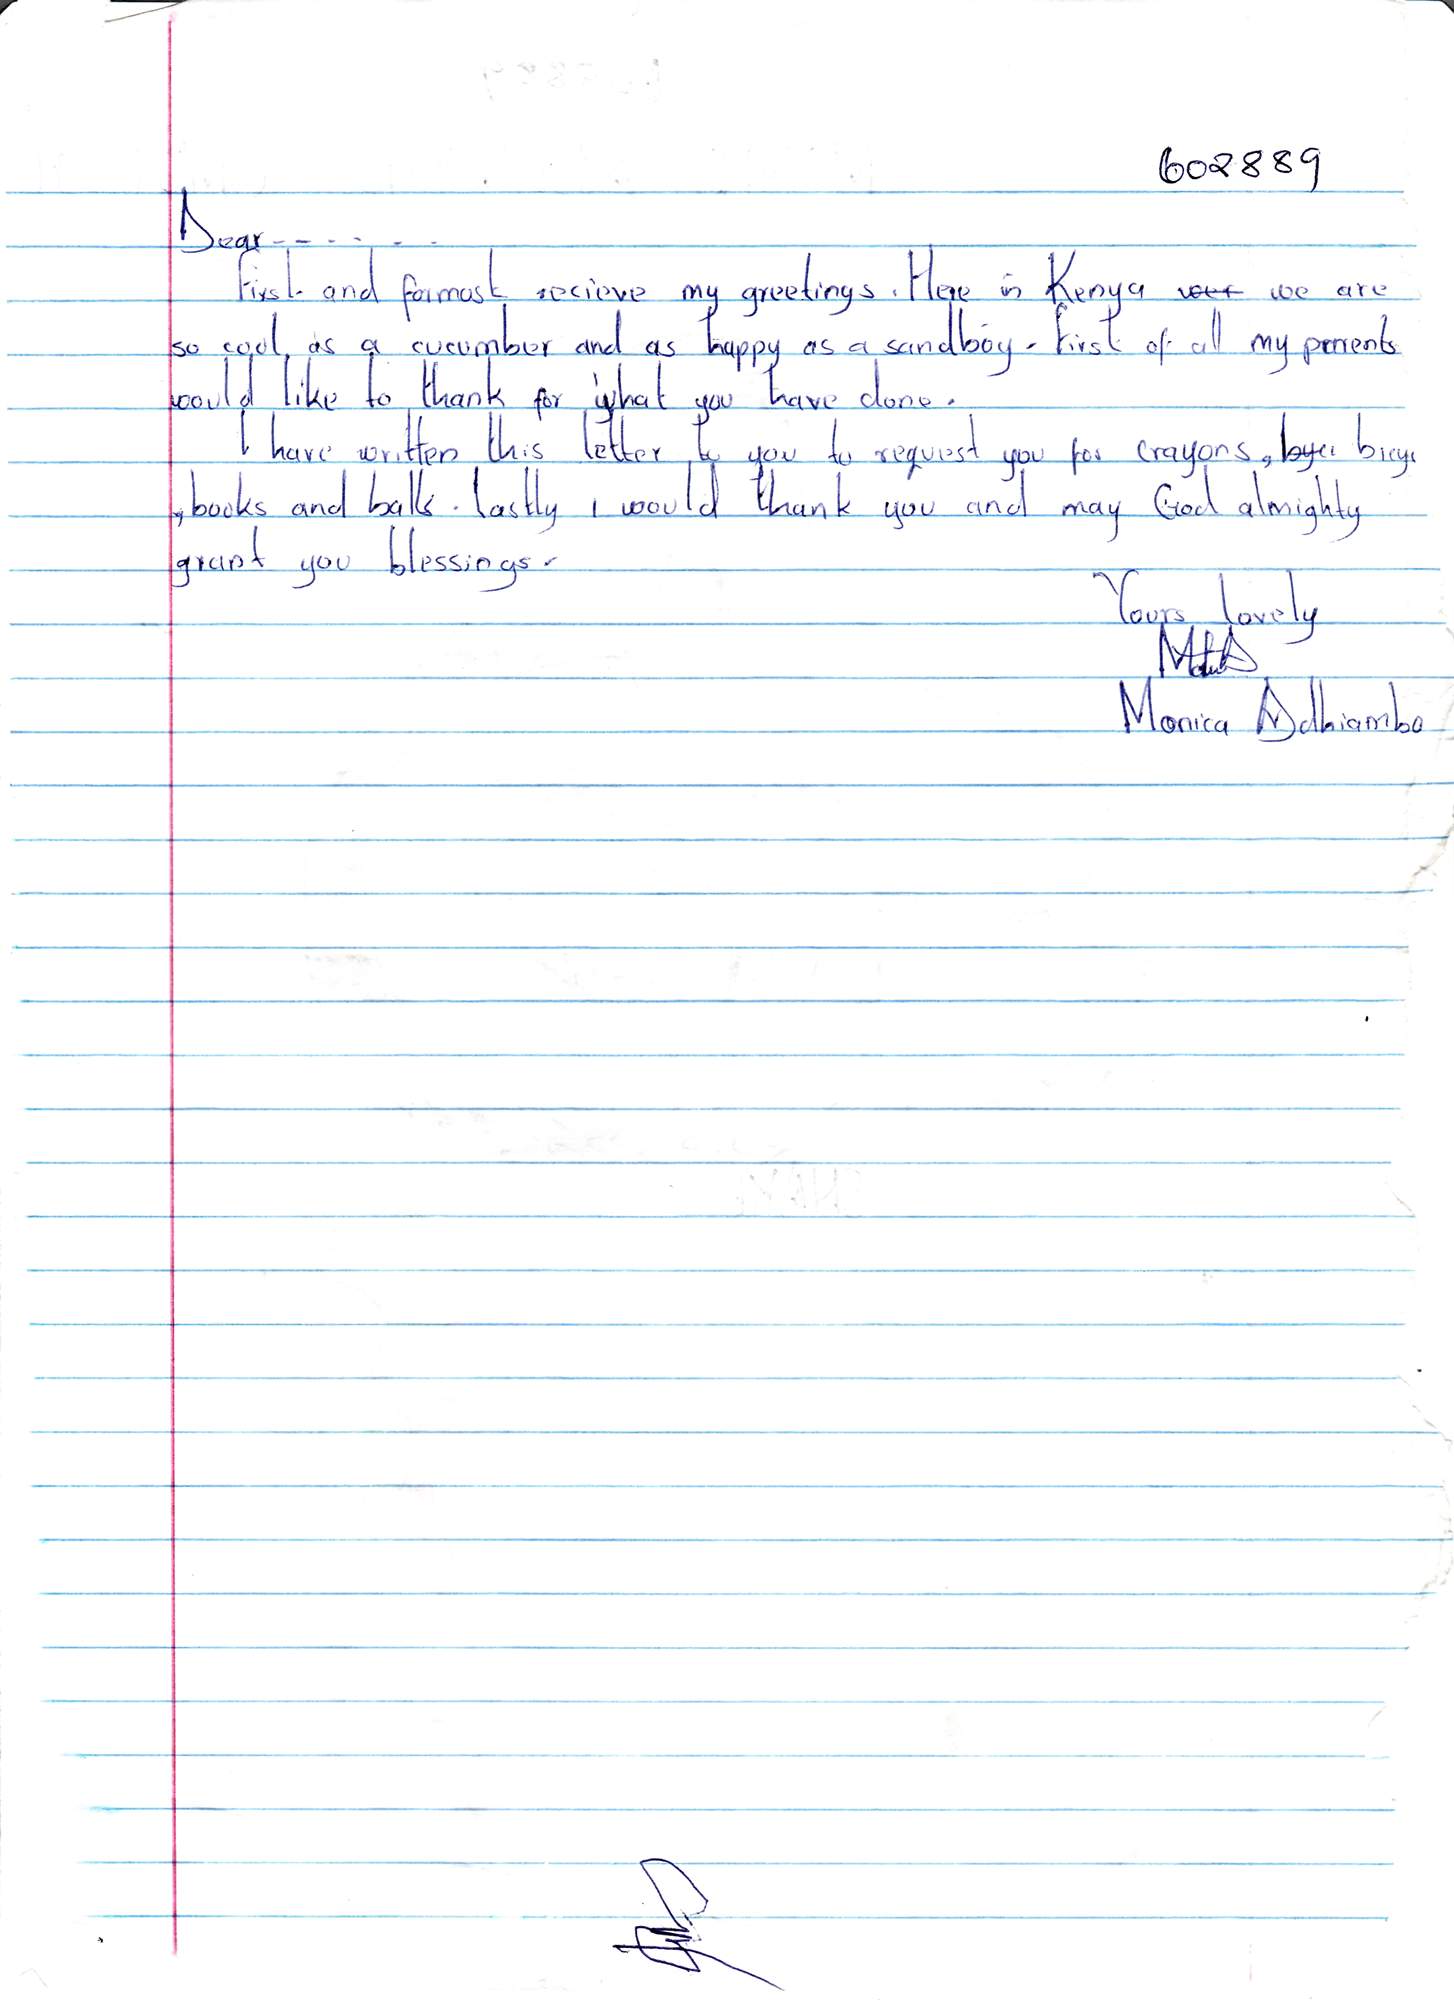 602889
Dear - - - - - -
First and formost recieve my greetings. Here in Kenya we are
so cool as a cucumber and as happy as a sandboy. First of all my parents
would like to thank for what you have done.
I have written this letter to you to request you for crayons, bicyc
, books and balls. lastly i would thank you and may God almighty
grant you blessings.
Yours lovely
Monica Adhiambo